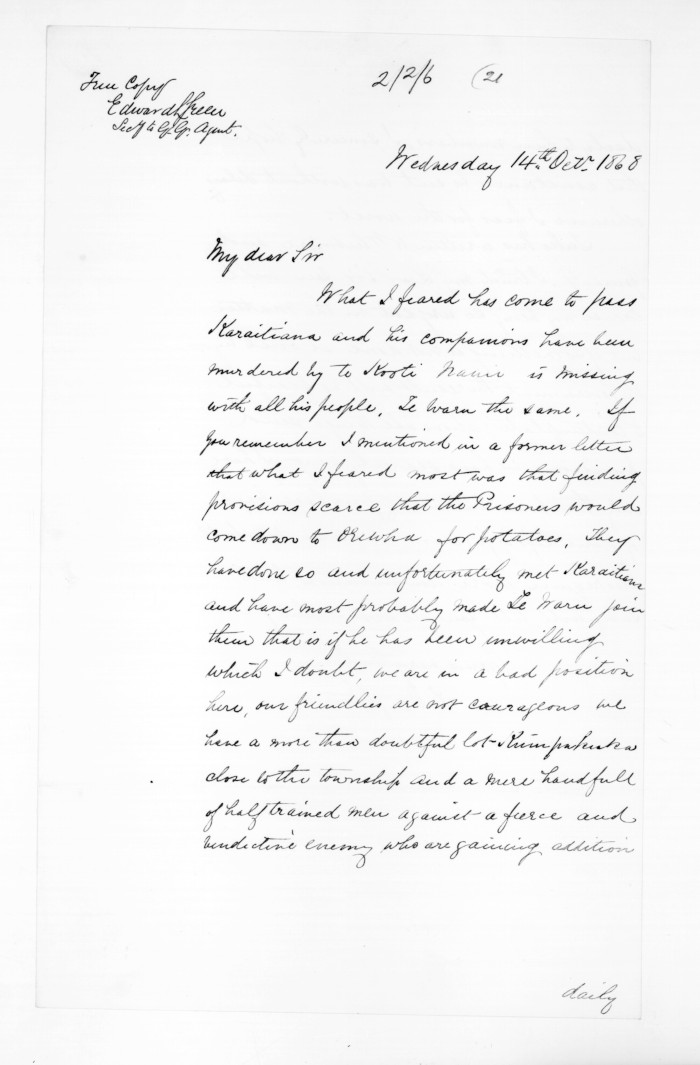 True Copy
Edward Green
Secy to Gl. Gt. Agent.
2/2/6 (21
Wednesday 14th. Octr. 1868
My dear Sir
What I feared has come to pass
Karaitiana and his companions have been
murdered by te Kooti is missing
with all his people, Te Waru the same. If
you remember I mentioned in a former letter
that what I feared most was that finding
provisions scarce that the Prisoners would
come down to for potatoes, They
have done so and unfortunately met Karaitiana
and have most probably made Te Waru join
them that is if he has been unwilling
which I doubt, we are in a bad position
here, our friendlies are not courageous we
have a more than doubtful lot
close to the township and a mere handfull
of half trained men against a fierce and
vindictive enemy who are gaining addition
daily